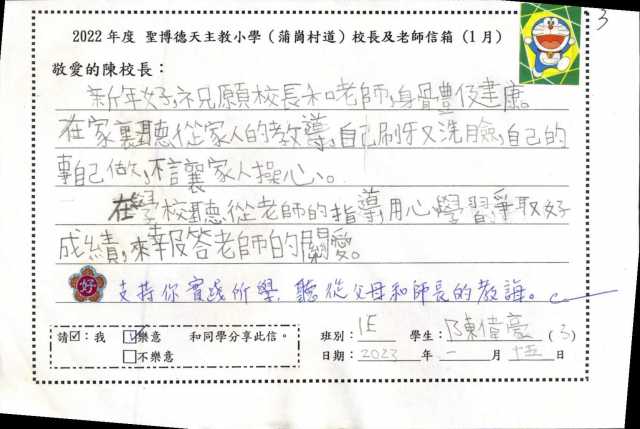 2022年度 聖博德天主教小學(蒲崗村道)校長及老師信箱(1月)
3
敬愛的陳校長:
新年好,祝願校長和老師,身體健康。
在家裏聽從家人的教導,自己刷牙又洗臉,自己的
事自己做,不讓家人操心。
在學校聽從老師的指導,用心學習,爭取好
成績,來報答老師的關愛。
好 支持你實踐所學,聽從父母和師長的教誨。
請☑:我 ☑樂意 和同學分享此信。
□不樂意
班別: 1E 學生: 陳偉豪 (3)
日期: 2023 年 一 月 十五 日